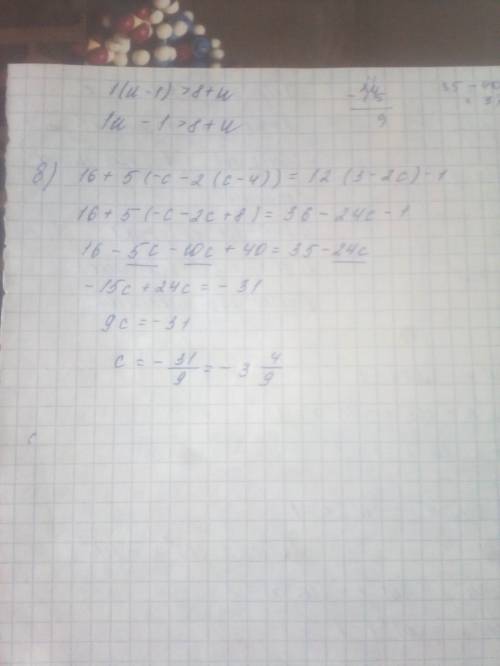 1(u-1) > 8+u
1u - 1 > 8+u
- 24
15
9
35 - 40
8) 16 + 5(-c - 2(c-4)) = 12(3-2c)-1
16 + 5(-c - 2c + 8) = 36 - 24c - 1
16 - 5c - 10c + 40 = 35 - 24c
-15c + 24c = -31
9c = -31
c = - 31/9 = -3 4/9